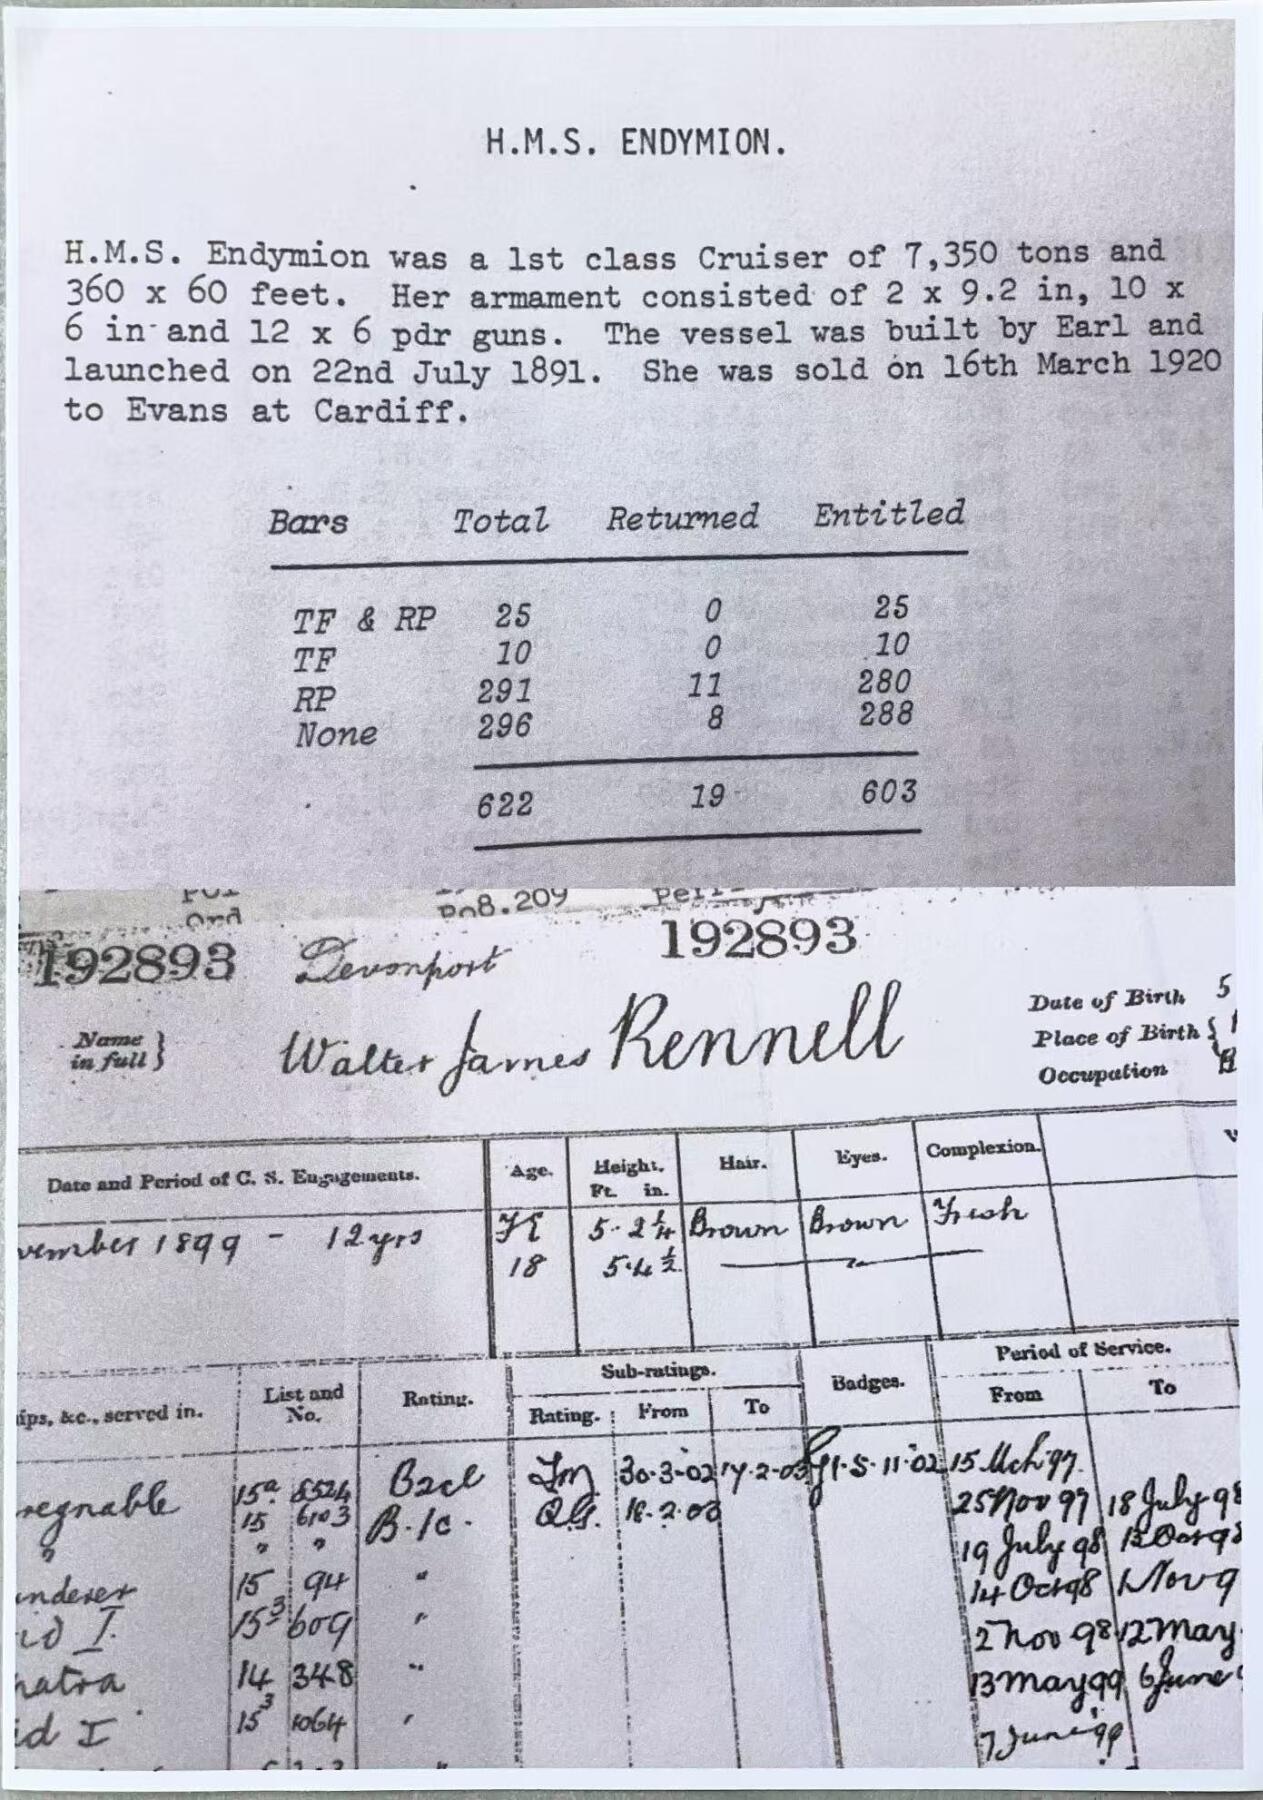 H.M.S. ENDYMION.
H.M.S. Endymion was a 1st class Cruiser of 7,350 tons and
360 x 60 feet. Her armament consisted of 2 x 9.2 in, 10 x
6 in and 12 x 6 pdr guns. The vessel was built by Earl and
launched on 22nd July 1891. She was sold on 16th March 1920
to Evans at Cardiff.
Bars Total Returned Entitled
TF & RP 25 0 25
TF 10 0 10
RP 291 11 280
None 296 8 288
622 19 603
Ord 8.209
192893 Devonport 192893
Name in full } Walter James Rennell
Date of Birth 5
Place of Birth {
Occupation
Date and Period of C. S. Engagements. Age. Height. Ft. in. Hair. Eyes. Complexion.
vember 1899 - 12 yrs 5·2¼ Brown Brown Fresh
18 5·4½
ips, &c., served in. List and No. Rating. Sub-ratings. Badges. Period of Service.
Rating. From To From To
regnable 15ª 8524 30·3·02 17·2·03 5·11·02 15 Mch 97
15 6103 B.1c. 18·2·03 25 Nov 97 18 July 98
" " " 19 July 98 13 Oct 98
nderer 15 94 " 14 Oct 98 1 Nov 9
id I. 15³ 609 " 2 Nov 98 12 May
patra 14 348 " 13 May 99 6 June
id I 15³ 1064 " 7 June 99